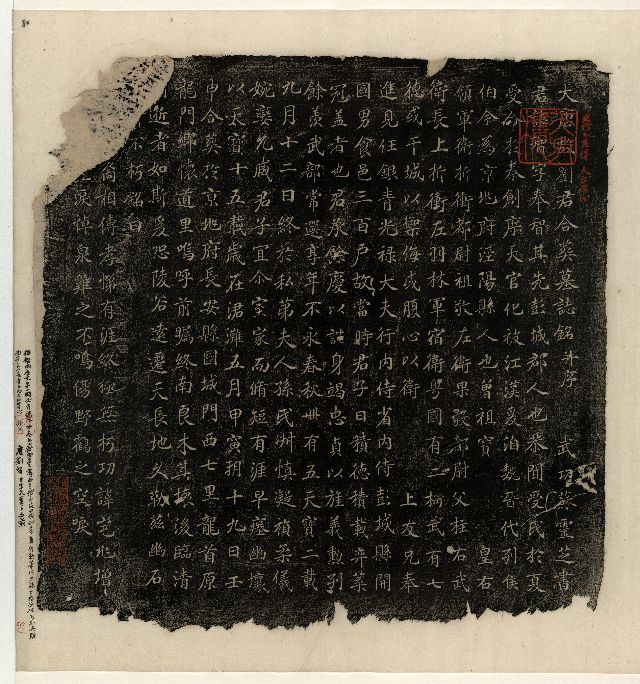 大唐故劉君合葬墓誌銘并序 武功蘇靈芝書
君 字奉智其先彭城郡人也恭聞受氏於夏
受命於秦創席天官化被江漢爰洎魏晉代列侯
伯今為京兆府涇陽縣人也曾祖寶 皇右
領軍衛折衝都尉祖敬左衛果毅都尉父桂右武
衛長上折衝左羽林軍宿衛學國有二柄武有七
德或干城以禦侮或腹心以衛 上友兄奉
進見任銀青光祿大夫行內侍省內侍彭城縣開
國男食邑三百戶故當時君子曰積德積載弈葉
冠蓋者也君承餘慶以誕身竭忠貞以旌義勳列
餘羨武部常選享年不永春秋卌有五天寶二載
九月十二日終於私第夫人孫氏淑慎凝禎柔儀
婉孌允臧君子宜尒室家而脩短有涯早瘞幽壤
以天寶十五載歲在涒灘五月甲寅朔十九日壬
申合葬於京兆府長安縣國城門西七里龍首原
龍門鄉懷道里嗚呼前矚終南良木其壞後臨清
逝者如斯爰恐陵谷遠遷天長地久勒茲幽石
不朽銘曰
尚相傳孝悌有涯終極無朽功 地增
淚悼泉雞之不鳴傷野鶴之空唳